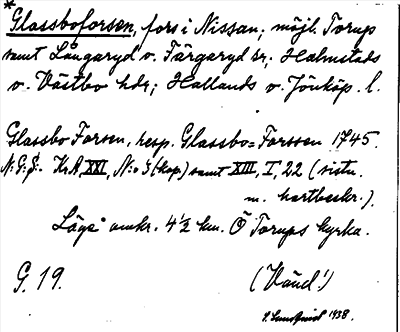 *
Glassboforsen, fors i Nissan; möjl. Torup
samt Långaryd o. Färgaryd sr; Halmstads
o. Västbo hdr; Hallands o. Jönköp. l.
Glassbo Forsen, resp. Glassbo=Forssen 1745.
KrA, XXI, N:o 3 (kop.) samt XIII, I, 22 (vista
m. kartbeskr.).
Läge omkr. 4 ½ km. Ö Torups kyrka.
G. 19. (Vänd!)
Lundqvist 1938.